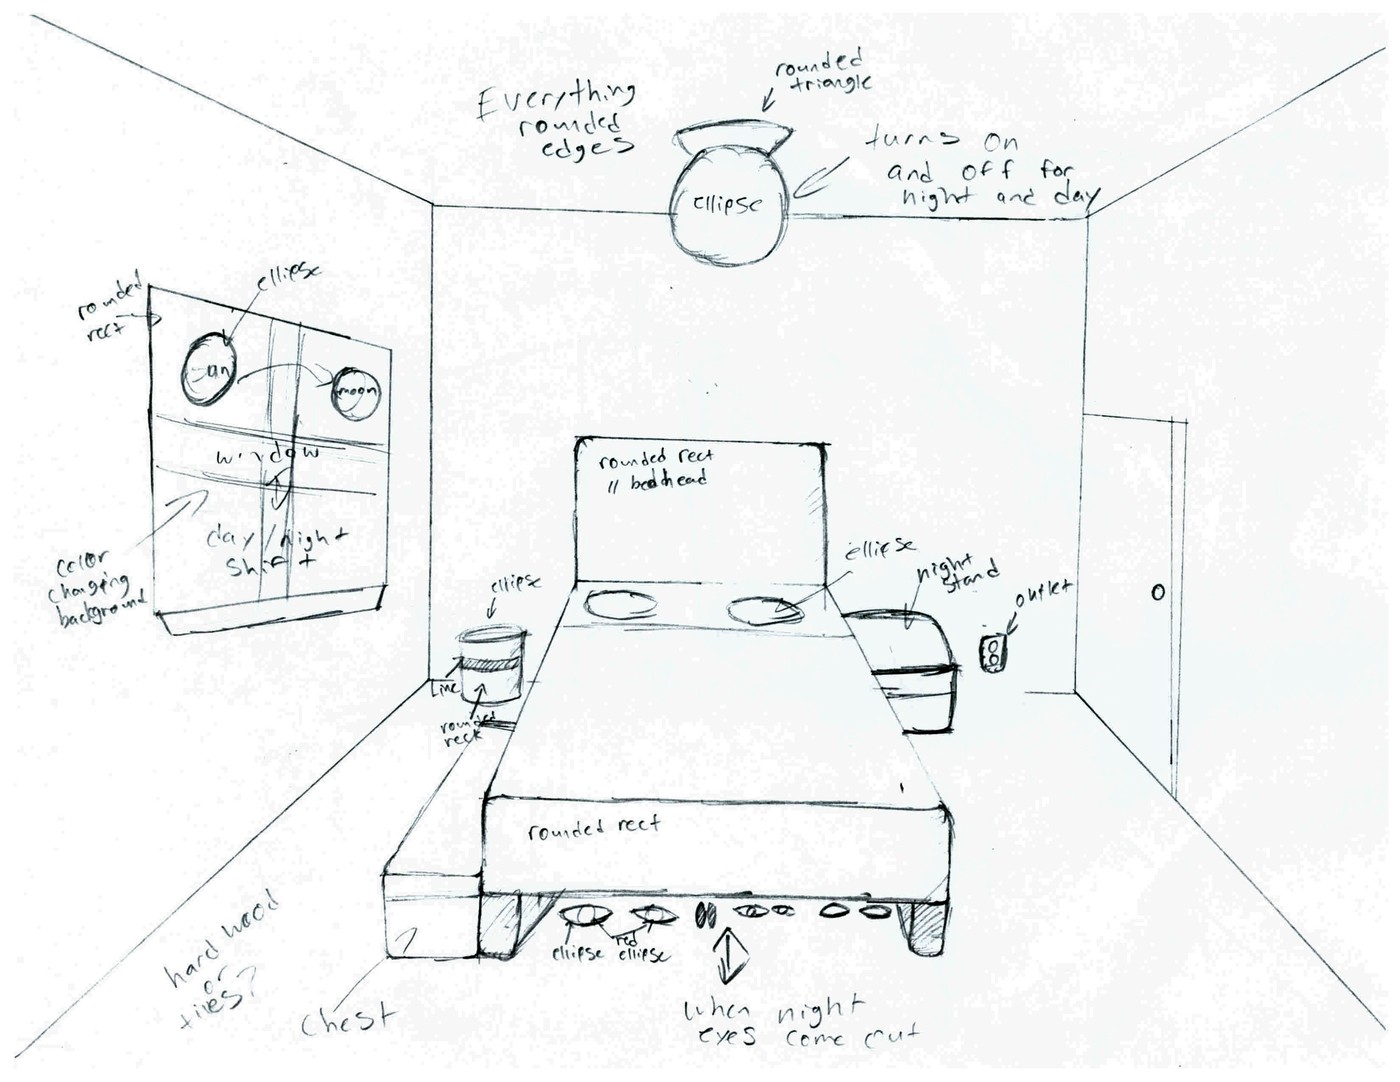 rounded
triangle
Everything
rounded
edges
turns on
and off for
night and day
ellipse
ellipse
rounded
rect
sun
moon
window
day/night
shift
color
changing
background
rounded rect
// bedhead
ellipse
night
stand
outlet
ellipse
Line
rounded
rect
rounded rect
ellipse
red
ellipse
hard wood
or
tiles?
Chest
When night
eyes come out